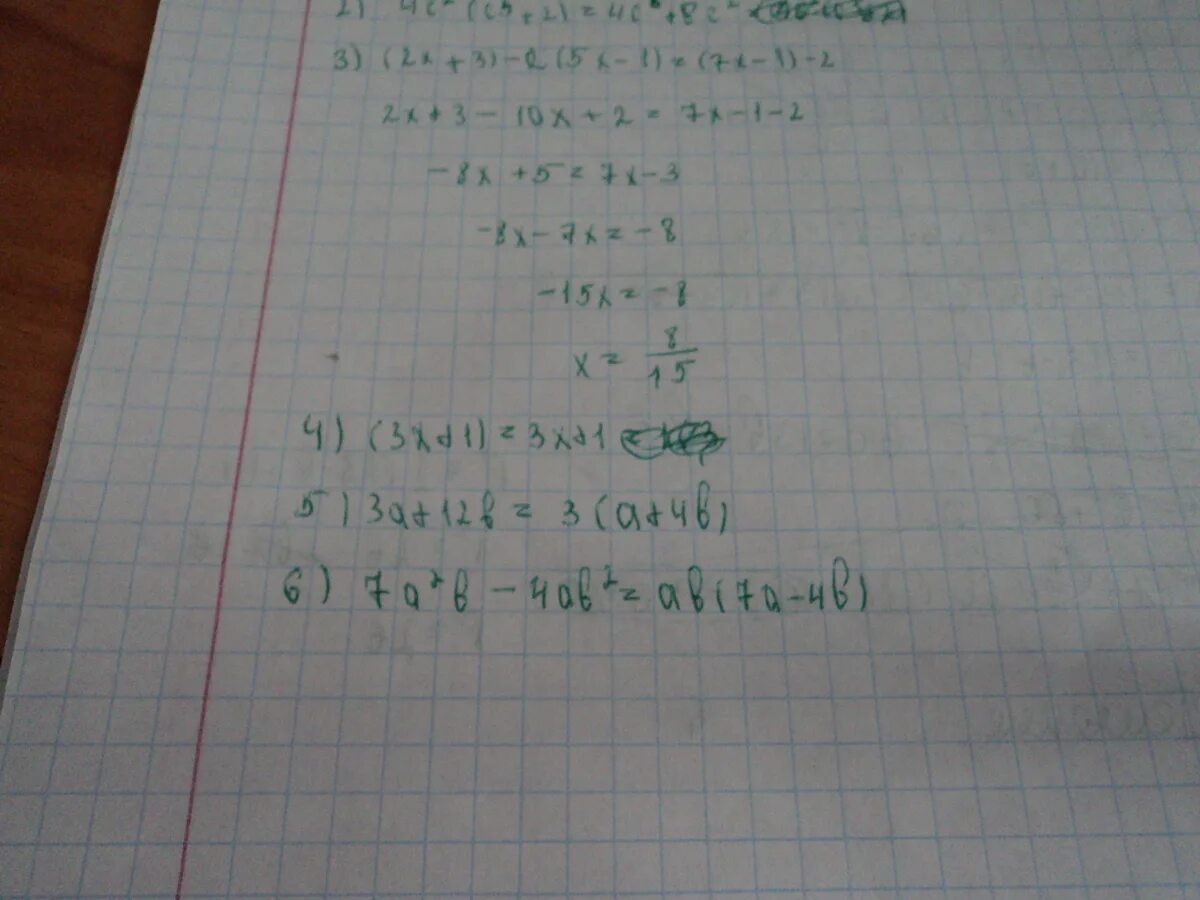 2) 4c² (c³ + 2) = 4c⁵ + 8c²
3) (2x + 3) - 2 (5x - 1) = (7x - 1) - 2
2x + 3 - 10x + 2 = 7x - 1 - 2
-8x + 5 = 7x - 3
-8x - 7x = -8
-15x = -8
x = 8/15
4) (3x + 1) = 3x + 1
5) 3a + 12b = 3 (a + 4b)
6) 7a²b - 4ab² = ab (7a - 4b)